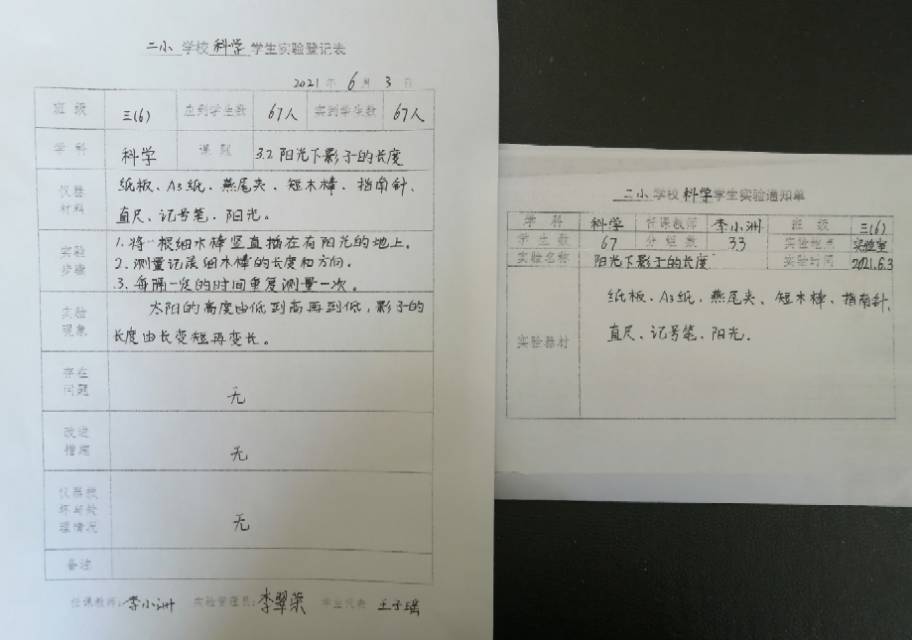 二小 学校 科学 学生实验登记表
2021 年 6 月 3 日
班 级 三(6) 应到学生数 67人 实到学生数 67人
学 科 科学 课 题 3.2 阳光下影子的长度
仪器材料 纸板、A3纸、燕尾夹、短木棒、指南针、
直尺、记号笔、阳光。
实验步骤 1.将一根细木棒竖直插在有阳光的地上。
2.测量记录细木棒的长度和方向。
3.每隔一定的时间重复测量一次。
实验现象 太阳的高度由低到高再到低,影子的
长度由长变短再变长。
存在问题 无
改进措施 无
仪器损坏与处理情况 无
备注
任课教师:李小洲 实验管理员:李翠荣 学生代表
二小 学校 科学 学生实验通知单
学 科 科学 任课教师 李小洲 班 级 三(6)
学 生 数 67 分 组 数 33 实验地点 实验室
实验名称 阳光下影子的长度 实验时间 2021.6.3
实验器材 纸板、A3纸、燕尾夹、短木棒、指南针、
直尺、记号笔、阳光.